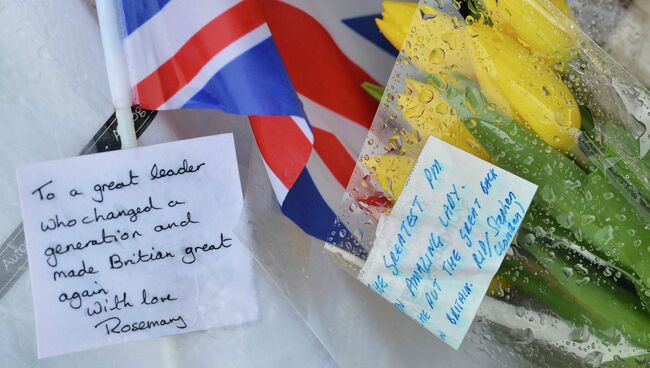 To a great leader
who changed a
generation and
made Britian great
again
With love
Rosemary
THE GREATEST PM
AN AMAZING LADY.
SHE PUT THE GREAT BACK
IN BRITAIN. RIP Stephen